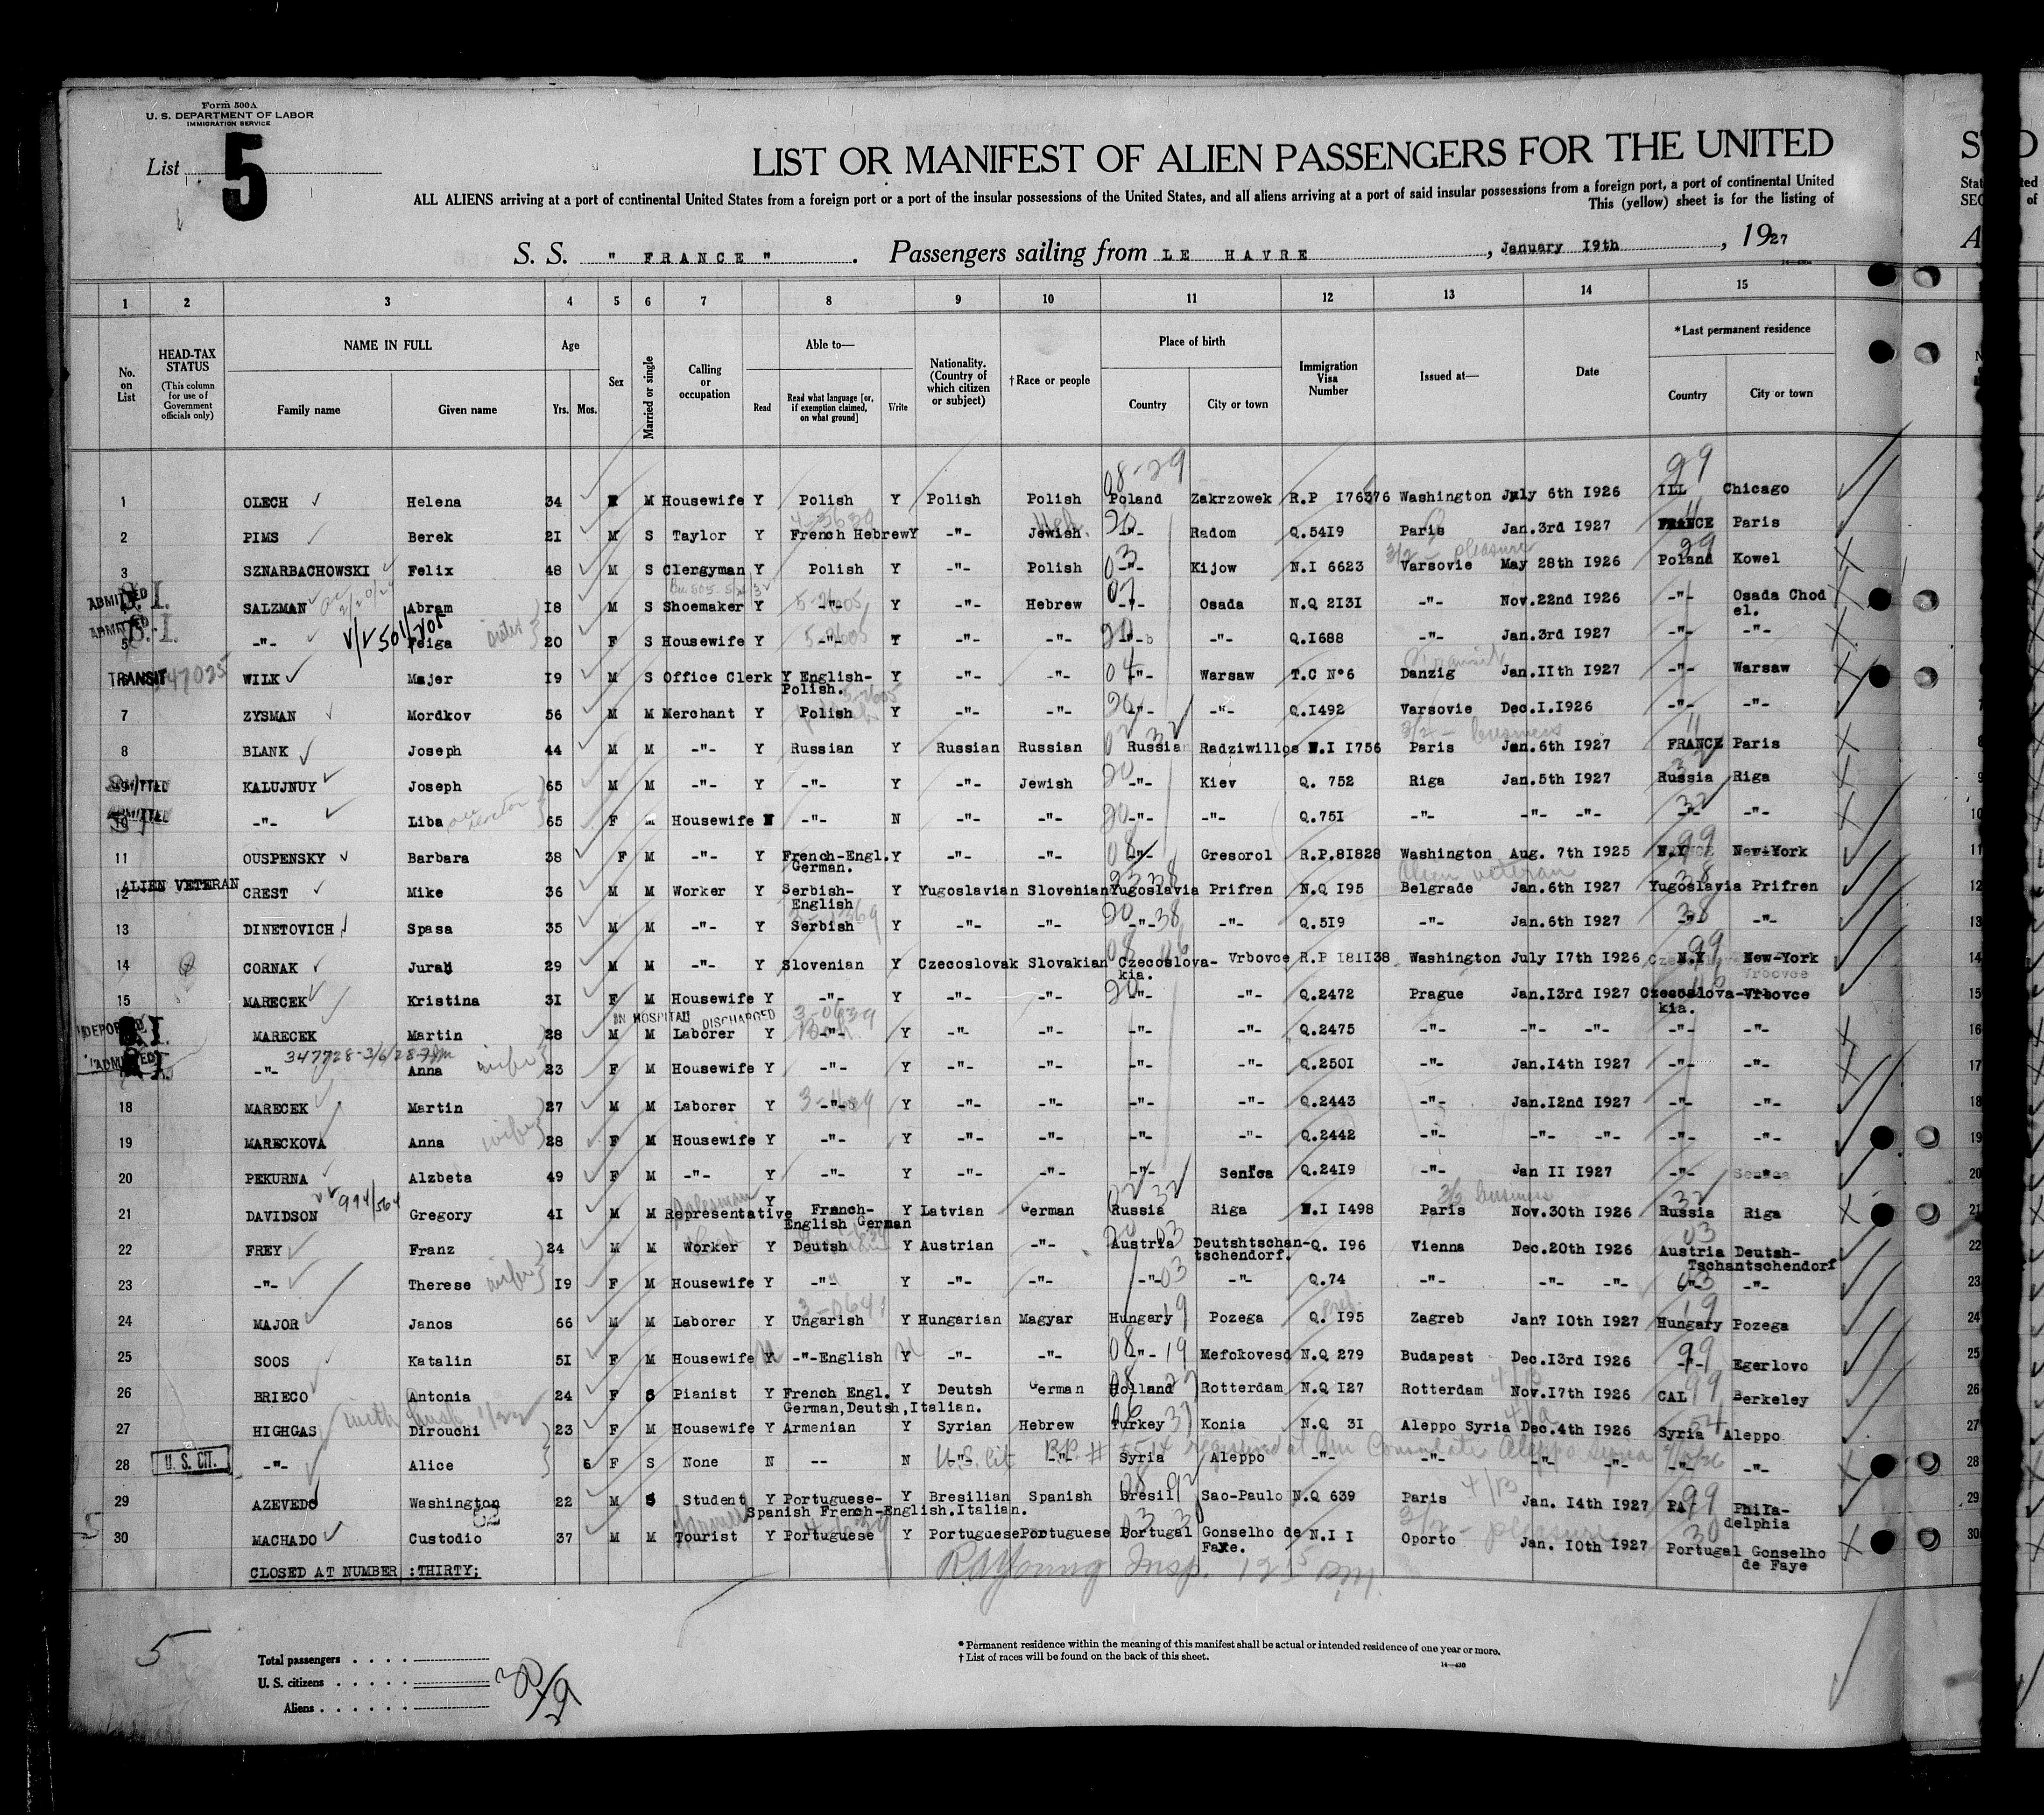 Form 500A
U. S. DEPARTMENT OF LABOR
IMMIGRATION SERVICE
List 5
LIST OR MANIFEST OF ALIEN PASSENGERS FOR THE UNITED
ALL ALIENS arriving at a port of continental United States from a foreign port or a port of the insular possessions of the United States, and all aliens arriving at a port of said insular possessions from a foreign port, a port of continental United
This (yellow) sheet is for the listing of
S. S. " FRANCE " . Passengers sailing from LE HAVRE , January I9th , 1927
1 2 3 4 5 6 7 8 9 10 11 12 13 14 15
No. on List
HEAD-TAX STATUS (This column for use of Government officials only)
NAME IN FULL Family name Given name
Age Yrs. Mos.
Sex
Married or single
Calling or occupation
Able to— Read Read what language [or, if exemption claimed, on what ground] Write
Nationality. (Country of which citizen or subject)
†Race or people
Place of birth Country City or town
Immigration Visa Number
Issued at—
Date
*Last permanent residence Country City or town
1 OLECH Helena 34 M Housewife Y Polish Y Polish Polish Poland Zakrzowek R.P I76376 Washington July 6th I926 ILL Chicago
2 PIMS Berek 2I M S Taylor Y French Hebrew Y -"- Jewish -"- Radom Q.54I9 Paris Jan.3rd I927 FRANCE Paris
3 SZNARBACHOWSKI Felix 48 M S Clergyman Y Polish Y -"- Polish -"- Kijow N.I 6623 Varsovie May 28th I926 Poland Kowel
ADMITTED S.I. SALZMAN Abram I8 M S Shoemaker Y -"- Y -"- Hebrew -"- Osada N.Q 2I3I -"- Nov.22nd I926 -"- Osada Chod
el.
ADMITTED S.I. 5 -"- Feiga 20 F S Housewife Y -"- Y -"- -"- -"- -"- Q.I688 -"- Jan.3rd I927 -"- -"-
TRANSIT WILK Majer I9 M S Office Clerk Y English- Y -"- -"- -"- Warsaw T.C N°6 Danzig Jan.IIth I927 -"- Warsaw
Polish.
7 ZYSMAN Mordkov 56 M M Merchant Y Polish Y -"- -"- -"- -"- Q.I492 Varsovie Dec.I.I926 -"- -"-
8 BLANK Joseph 44 M M -"- Y Russian Y Russian Russian Russia Radziwillos N.I I756 Paris Jan.6th I927 FRANCE Paris
ADMITTED 9 KALUJNUY Joseph 65 M M -"- Y -"- Y -"- Jewish -"- Kiev Q. 752 Riga Jan.5th I927 Russia Riga
ADMITTED 10 -"- Liba 65 F M Housewife N -"- N -"- -"- -"- -"- Q.75I -"- -"- -"- -"- -"-
11 OUSPENSKY Barbara 38 F M -"- Y French-Engl. Y -"- -"- -"- Gresorol R.P.8I828 Washington Aug. 7th I925 N.Y New-York
German.
ALIEN VETERAN
12 CREST Mike 36 M M Worker Y Serbish- Y Yugoslavian Slovenian Yugoslavia Prifren N.Q I95 Belgrade Jan.6th I927 Yugoslavia Prifren
English
13 DINETOVICH Spasa 35 M M -"- Y Serbish Y -"- -"- -"- -"- Q.5I9 -"- Jan.6th I927 -"- -"-
14 CORNAK Juray 29 M M -"- Y Slovenian Y Czecoslovak Slovakian Czecoslova- Vrbovce R.P I8II38 Washington July I7th I926 N.Y New-York
kia.
15 MARECEK Kristina 3I F M Housewife Y -"- Y -"- -"- -"- -"- Q.2472 Prague Jan.I3rd I927 Czecoslova- Vrbovce
kia.
IN HOSPITAL DISCHARGED
DEPORTED MARECEK Martin 28 M M Laborer Y -"- Y -"- -"- -"- -"- Q.2475 -"- -"- -"- -"- -"-
347728-3/6/28
ADMITTED -"- Anna wife 23 F M Housewife Y -"- Y -"- -"- -"- -"- Q.250I -"- Jan.I4th I927 -"- -"-
18 MARECEK Martin 27 M M Laborer Y -"- Y -"- -"- -"- -"- Q.2443 -"- Jan.I2nd I927 -"- -"-
19 MARECKOVA Anna wife 28 F M Housewife Y -"- Y -"- -"- -"- -"- Q.2442 -"- -"- -"- -"- -"-
20 PEKURNA Alzbeta 49 F M -"- Y -"- Y -"- -"- -"- Senica Q.24I9 -"- Jan II I927 -"- -"-
21 DAVIDSON Gregory 4I M M Representative Y French- Y Latvian German Russia Riga N.I I498 Paris Nov.30th I926 Russia Riga
English German
22 FREY Franz 24 M M Worker Y Deutsh Y Austrian -"- Austria Deutshtschan- Q. I96 Vienna Dec.20th I926 Austria Deutsh-
tschendorf. Tschantschendorf
23 -"- Therese wife I9 F M Housewife Y -"- Y -"- -"- -"- -"- Q.74 -"- -"- -"- -"- -"-
24 MAJOR Janos 66 M M Laborer Y Ungarish Y Hungarian Magyar Hungary Pozega Q. I95 Zagreb Jan? I0th I927 Hungary Pozega
25 SOOS Katalin 5I F M Housewife Y -"-English Y -"- -"- -"- Mefokovesd N.Q 279 Budapest Dec.I3rd I926 -"- Egerlovo
26 BRIECO Antonia 24 F S Pianist Y French Engl. Y Deutsh German Holland Rotterdam N.Q I27 Rotterdam Nov.I7th I926 CAL Berkeley
German,Deutsh,Italian.
27 HIGHGAS Dirouchi 23 F M Housewife Y Armenian Y Syrian Hebrew Turkey Konia N.Q 3I Aleppo Syria Dec.4th I926 Syria Aleppo
U. S. CIT. 28 -"- Alice 6 F S None N -- N -"- -"- Syria Aleppo -"- -"- -"- -"- -"- -"-
29 AZEVEDO Washington 22 M S Student Y Portuguese- Y Bresilian Spanish Bresil Sao-Paulo N.Q 639 Paris Jan. I4th I927 PA Phila-
Spanish French-English.Italian. delphia
30 MACHADO Custodio 37 M M Tourist Y Portuguese Y Portuguese Portuguese Portugal Gonselho de N.I I Oporto Jan. I0th I927 Portugal Gonselho
Faye. de Faye
CLOSED AT NUMBER :THIRTY;
* Permanent residence within the meaning of this manifest shall be actual or intended residence of one year or more.
† List of races will be found on the back of this sheet.
14—430
5
Total passengers
U. S. citizens
Aliens